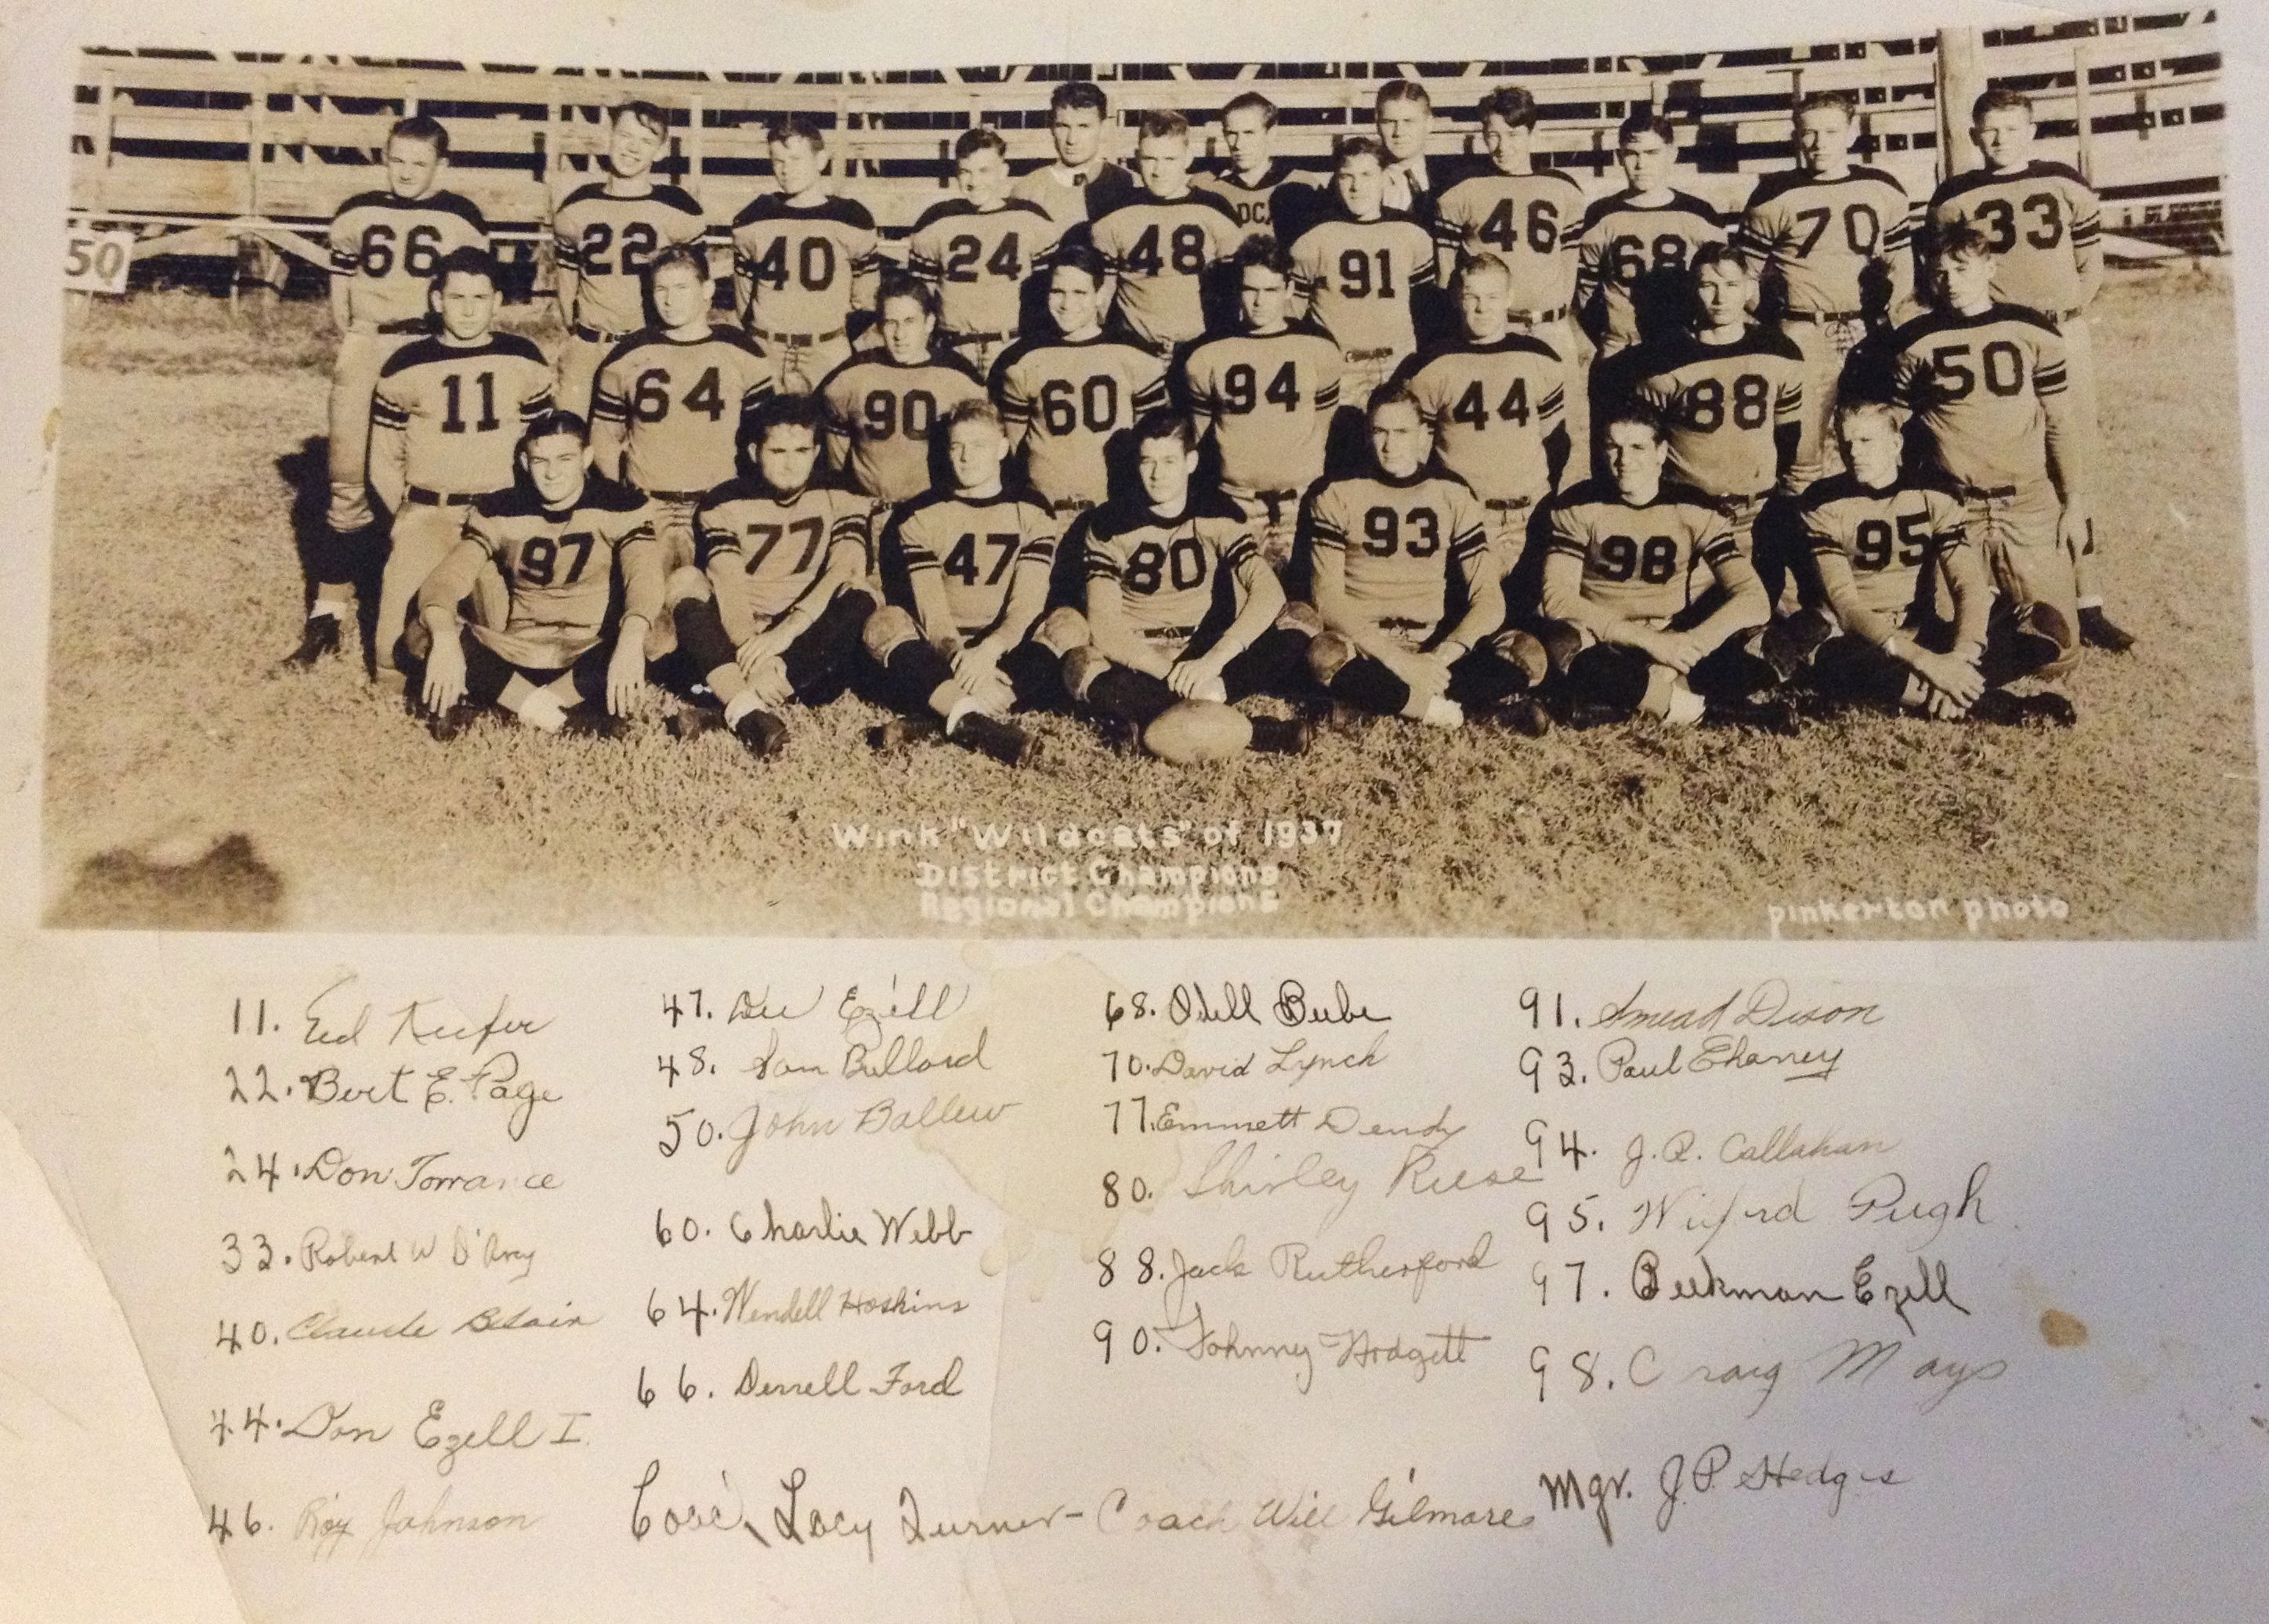 50
66 22 40 24 48 91 46 68 70 33
11 64 90 60 94 44 88 50
97 77 47 80 93 98 95
Wink "Wildcats" of 1937
District Champions
Regional Champions
pinkerton photo
11. Ed Keefer
22. Bert E. Page
24. Don Torrance
33. Robert W D'Arcy
40. Claude Blair
44. Don Ezell I.
46. Roy Johnson
47. Dee Ezell
48. Sam Bullard
50. John Ballew
60. Charlie Webb
64. Wendell Hoskins
66. Derrell Ford
68. Odell Beebe
70. David Lynch
77. Emmett Dendy
80. Shirley Reese
88. Jack Rutherford
90. Johnny Hodgett
91. Smead Dixon
93. Paul Chaney
94. J.R. Callahan
95. Pugh
97. Beekman Ezell
98. Craig Mays
Lacy Turner - Coach Will Gilmore
Mgr. J.P. Hedges